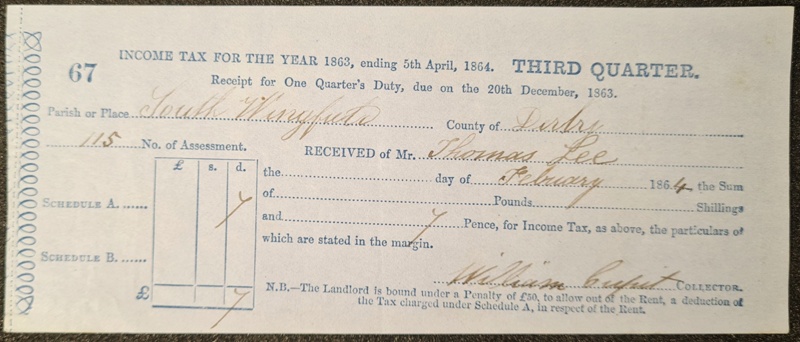 67
INCOME TAX FOR THE YEAR 1863, ending 5th April, 1864. THIRD QUARTER.
Receipt for One Quarter's Duty, due on the 20th December, 1863.
Parish or Place South Wingfield County of Derby
115 No. of Assessment.
RECEIVED OF Mr. Thomas Lee
£ s. d.
the day of February 1864 the Sum
of Pounds Shillings
SCHEDULE A. 7
and 7 Pence, for Income Tax, as above, the particulars of
which are stated in the margin.
SCHEDULE B.
William Cupit COLLECTOR.
£ 7
N.B.—The Landlord is bound under a Penalty of £50, to allow out of the Rent, a deduction of
the Tax charged under Schedule A, in respect of the Rent.